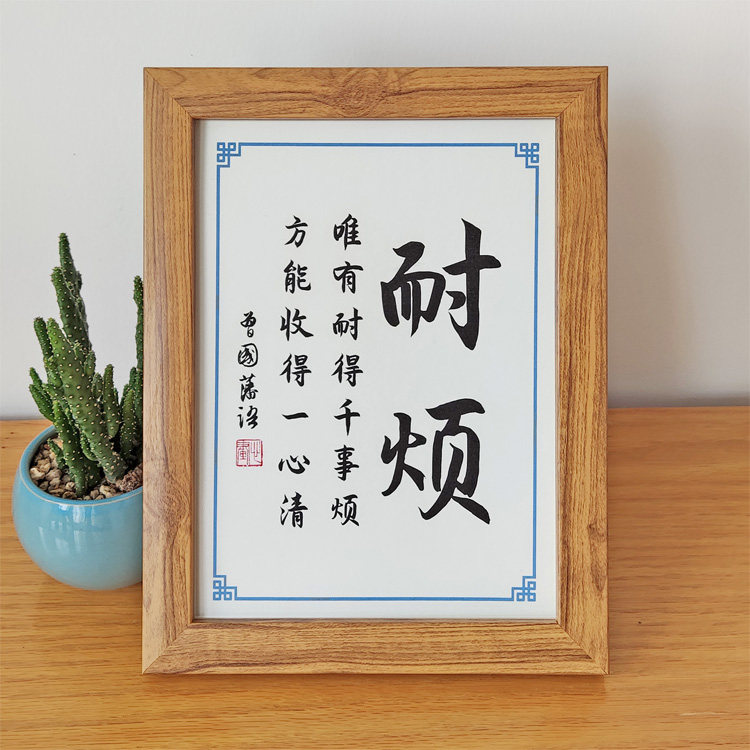 耐烦
唯有耐得千事烦
方能收得一心清
曾國藩语